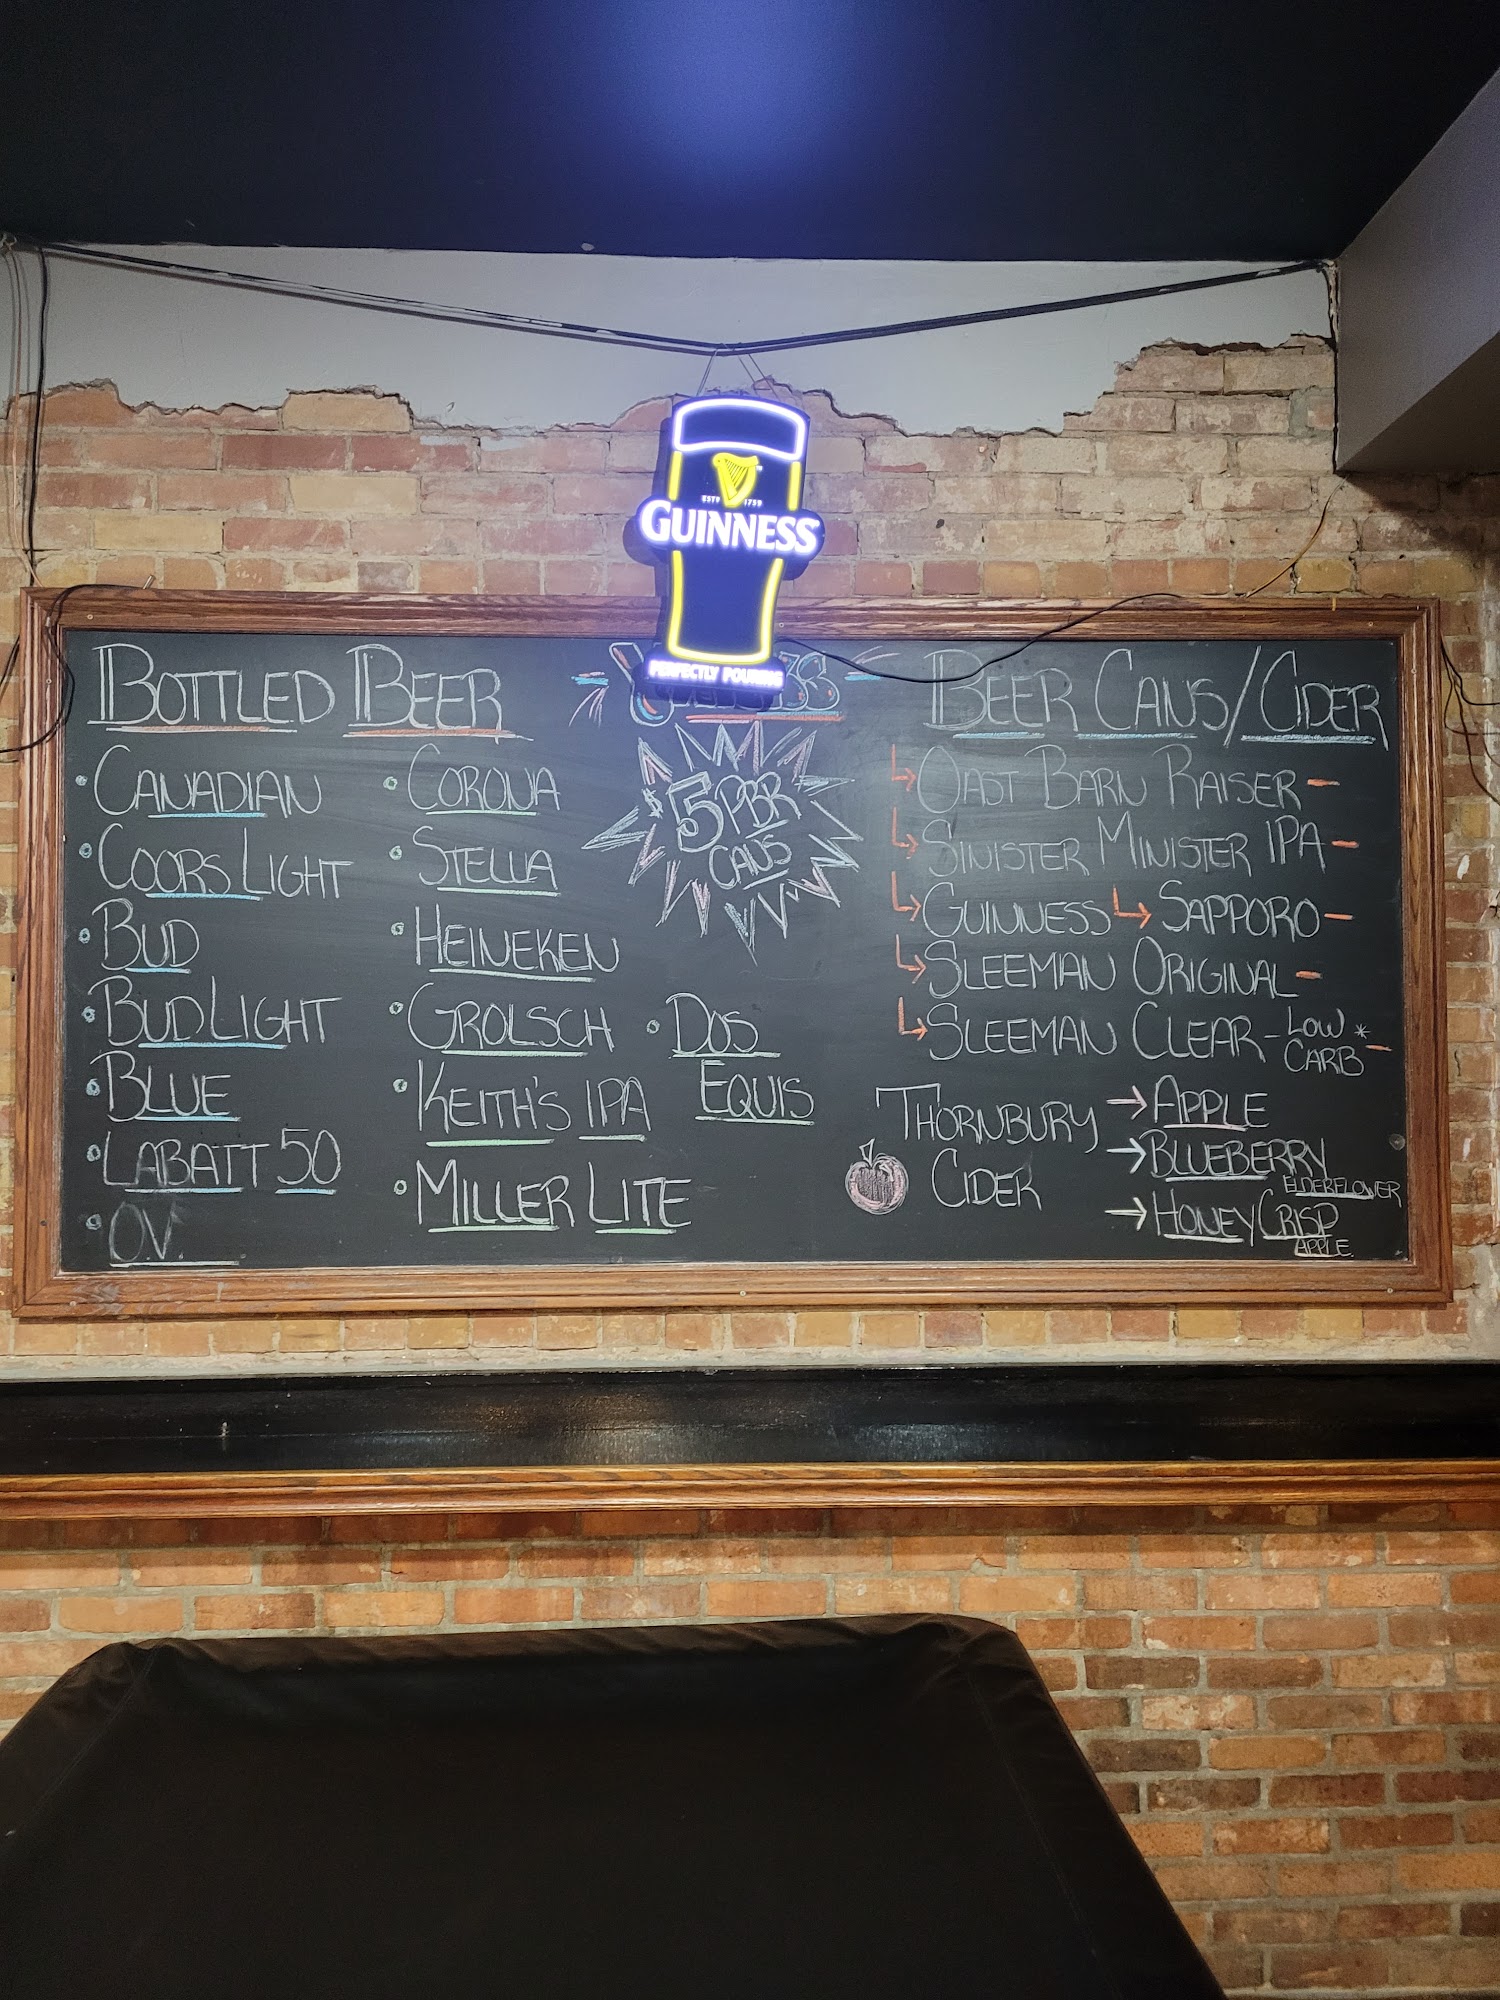 ESTD 1759
GUINNESS
PERFECTLY POURING
BOTTLED BEER
CANADIAN
COORS LIGHT
BUD
BUD LIGHT
BLUE
LABATT 50
O.V.
CORONA
STELLA
HEINEKEN
GROLSCH
KEITH'S IPA
MILLER LITE
DOS
EQUIS
$5 PBR
CANS
BEER CANS/CIDER
OAST BARN RAISER -
SINISTER MINISTER IPA -
GUINNESS SAPPORO -
SLEEMAN ORIGINAL -
SLEEMAN CLEAR - LOW *
CARB -
THORNBURY
CIDER
APPLE
BLUEBERRY
ELDERFLOWER
HONEYCRISP
APPLE